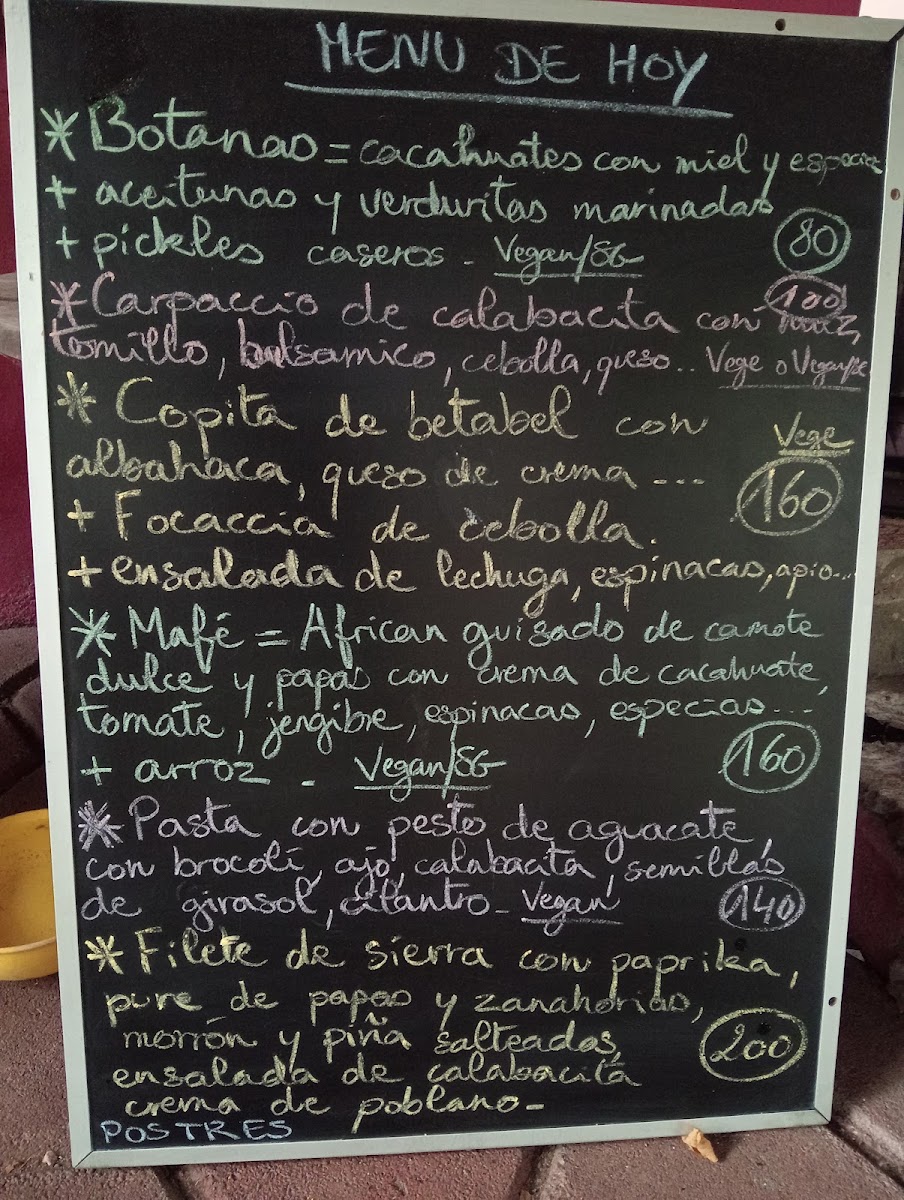 MENU DE HOY
* Botanas = cacahuates con miel y especias
+ aceitunas y verduritas marinadas
+ pickles caseros - Vegan/SG
80
* Carpaccio de calabacita con
100
tomillo, balsamico, cebolla, queso.. Vege o Vegan/SG
* Copita de betabel con
Vege
albahaca, queso de crema ...
160
+ Focaccia de cebolla.
+ ensalada de lechuga, espinacas, apio...
* Mafé = African guisado de camote
dulce y papas con crema de cacahuate,
tomate, jengibre, espinacas, especias....
+ arroz - Vegan/SG
160
* Pasta con pesto de aguacate,
con brocoli, ajo, calabacita, semillas
de girasol, cilantro - Vegan
140
* Filete de sierra con paprika,
pure de papas y zanahorias,
morrón y piña salteadas,
200
ensalada de calabacita
crema de poblano -
POSTRES